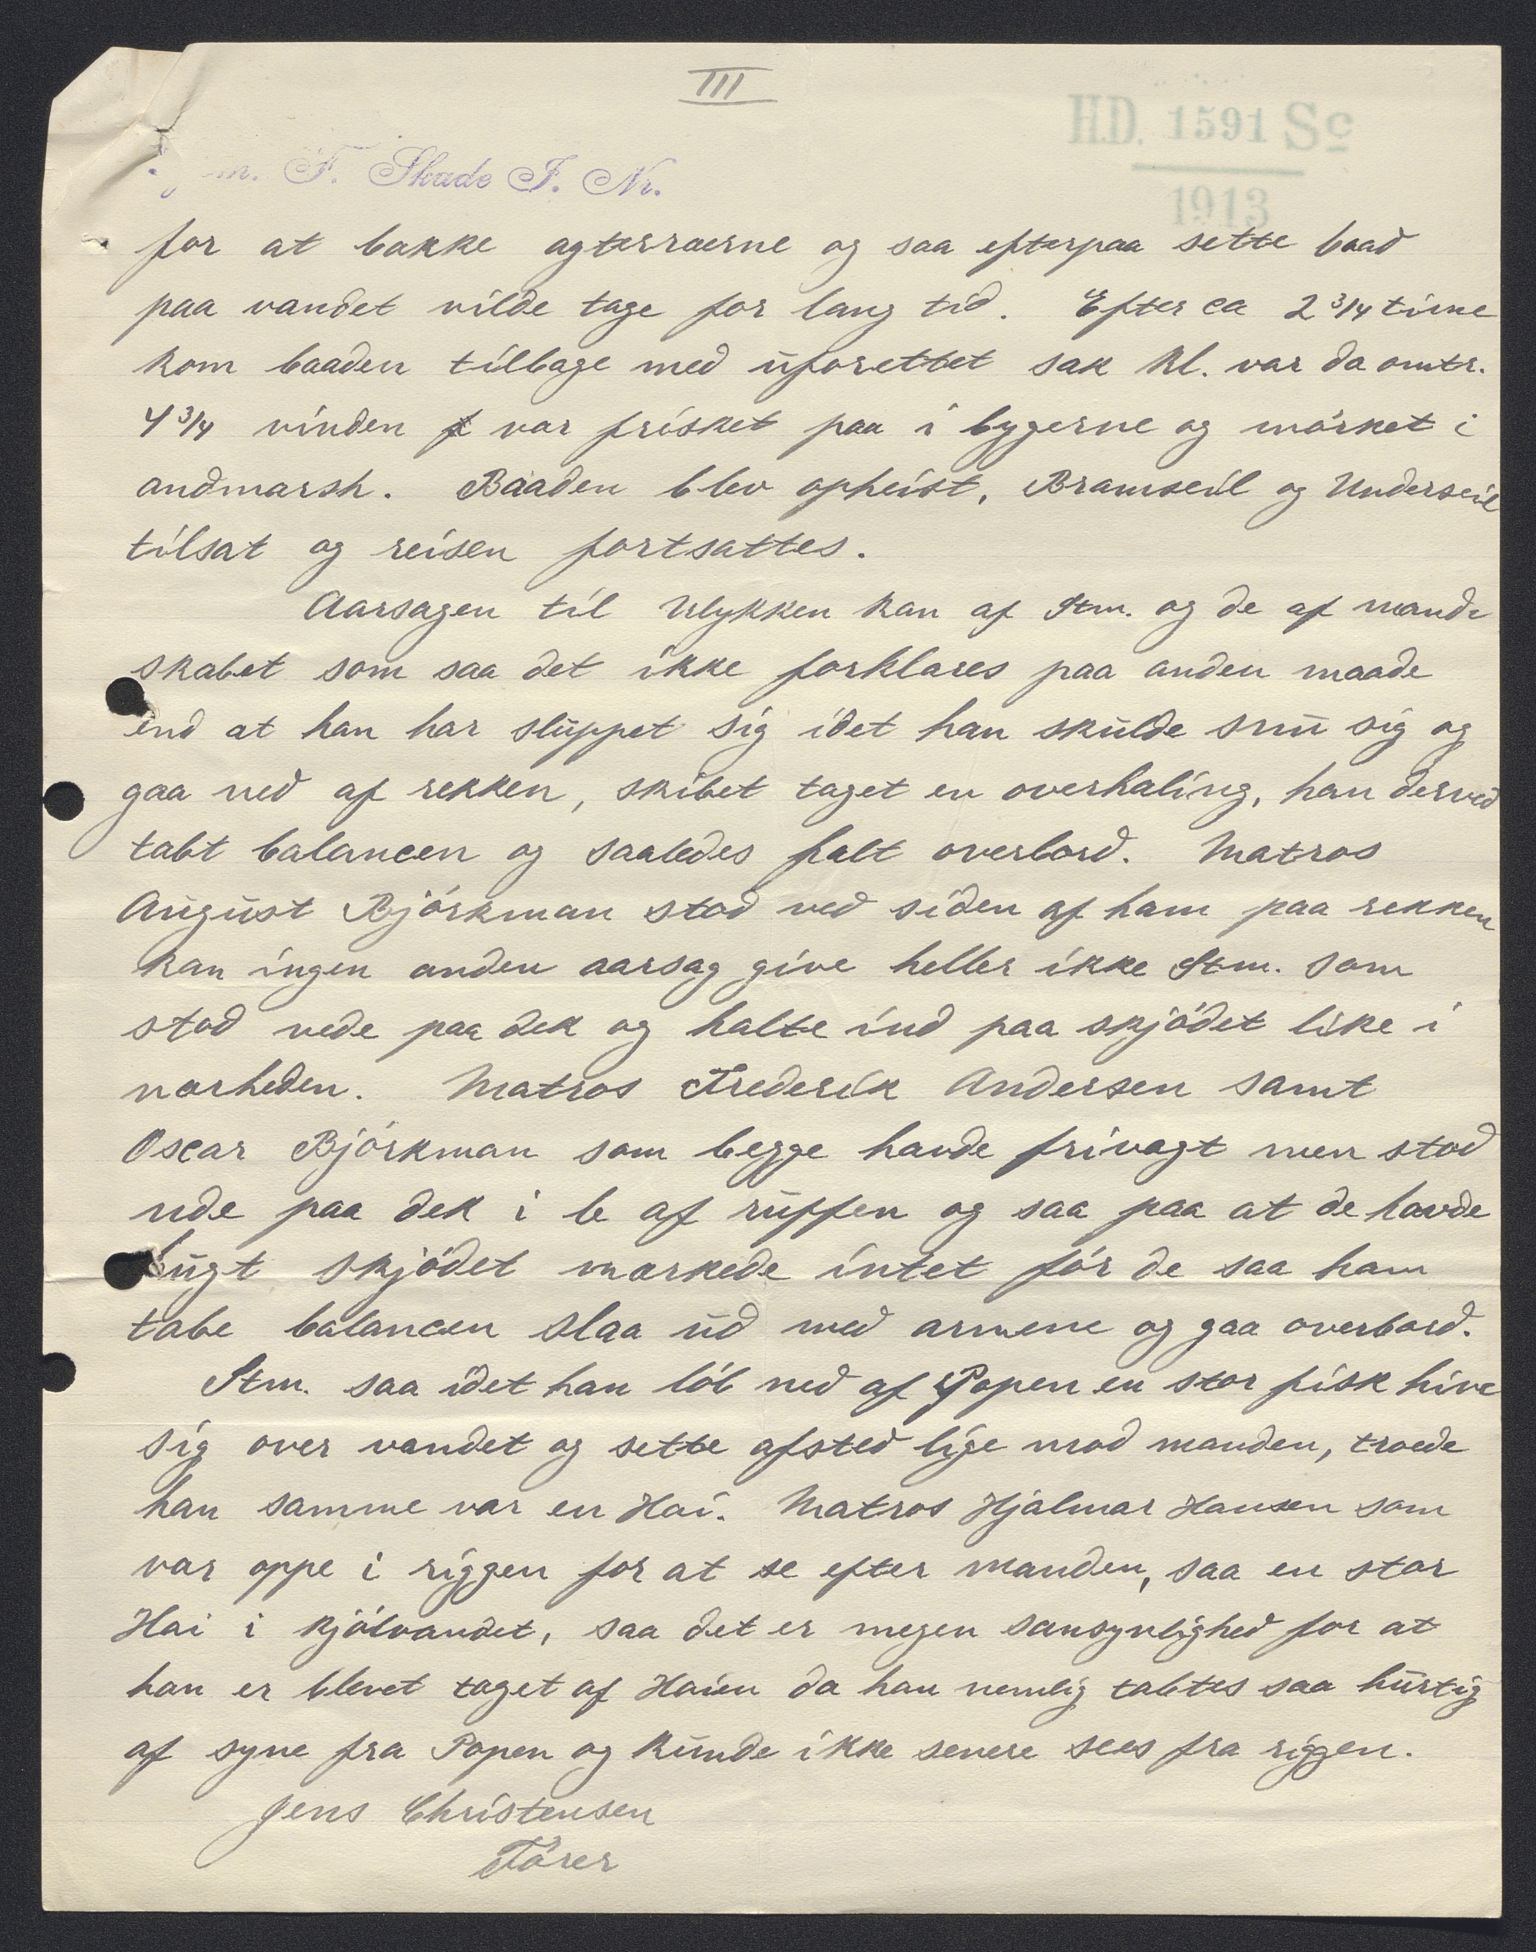 III
H.D. 1591 Sc
1913
m. F. Skade J. Nr.
for at bakke agterraerne og saa efterpaa sette baad
paa vandet vilde tage for lang tid. Efter ca 2 3/4 time
kom baaden tilbage med uforettet sak Kl. var da omtr.
4 3/4 vinden var frisket paa i bygerne og mörket i
andmarsh. Baaden blev opheist, Bramseil og Underseil
tilsat og reisen fortsattes.
Aarsagen til Ulykken kan af Stm. og de af mand-
skabet som saa det ikke forklares paa anden maade
end at han har sluppet sig idet han skulde snu sig og
gaa ned af rekken, skibet taget en overhaling, han derved
tabt balancen og saaledes falt overbord. Matros
August Björkman stod ved siden af ham paa rekken
kan ingen anden aarsag give heller ikke Stm. som
stod nede paa dek og halte ind paa skjödet like i
nærheden. Matros Frederik Andersen samt
Oscar Björkman som begge havde frivagt men stod
ude paa dek i le af ruffen og saa paa at de havde
bugt skjödet mærkede intet för de saa ham
tabe balancen slaa ud med armene og gaa overbord.
Stm. saa idet han löb ned af Popen en stor fisk hive
sig over vandet og sette afsted lige mod manden, troede
han samme var en Hai. Matros Hjalmar Hansen som
var oppe i riggen for at se efter manden, saa en stor
Hai i kjölvandet, saa det er megen sansynlighed for at
han er blevet taget af Haien da han nemlig tabtes saa hurtig
af syne fra Popen og kunde ikke senere sees fra riggen.
Jens Christensen
Förer